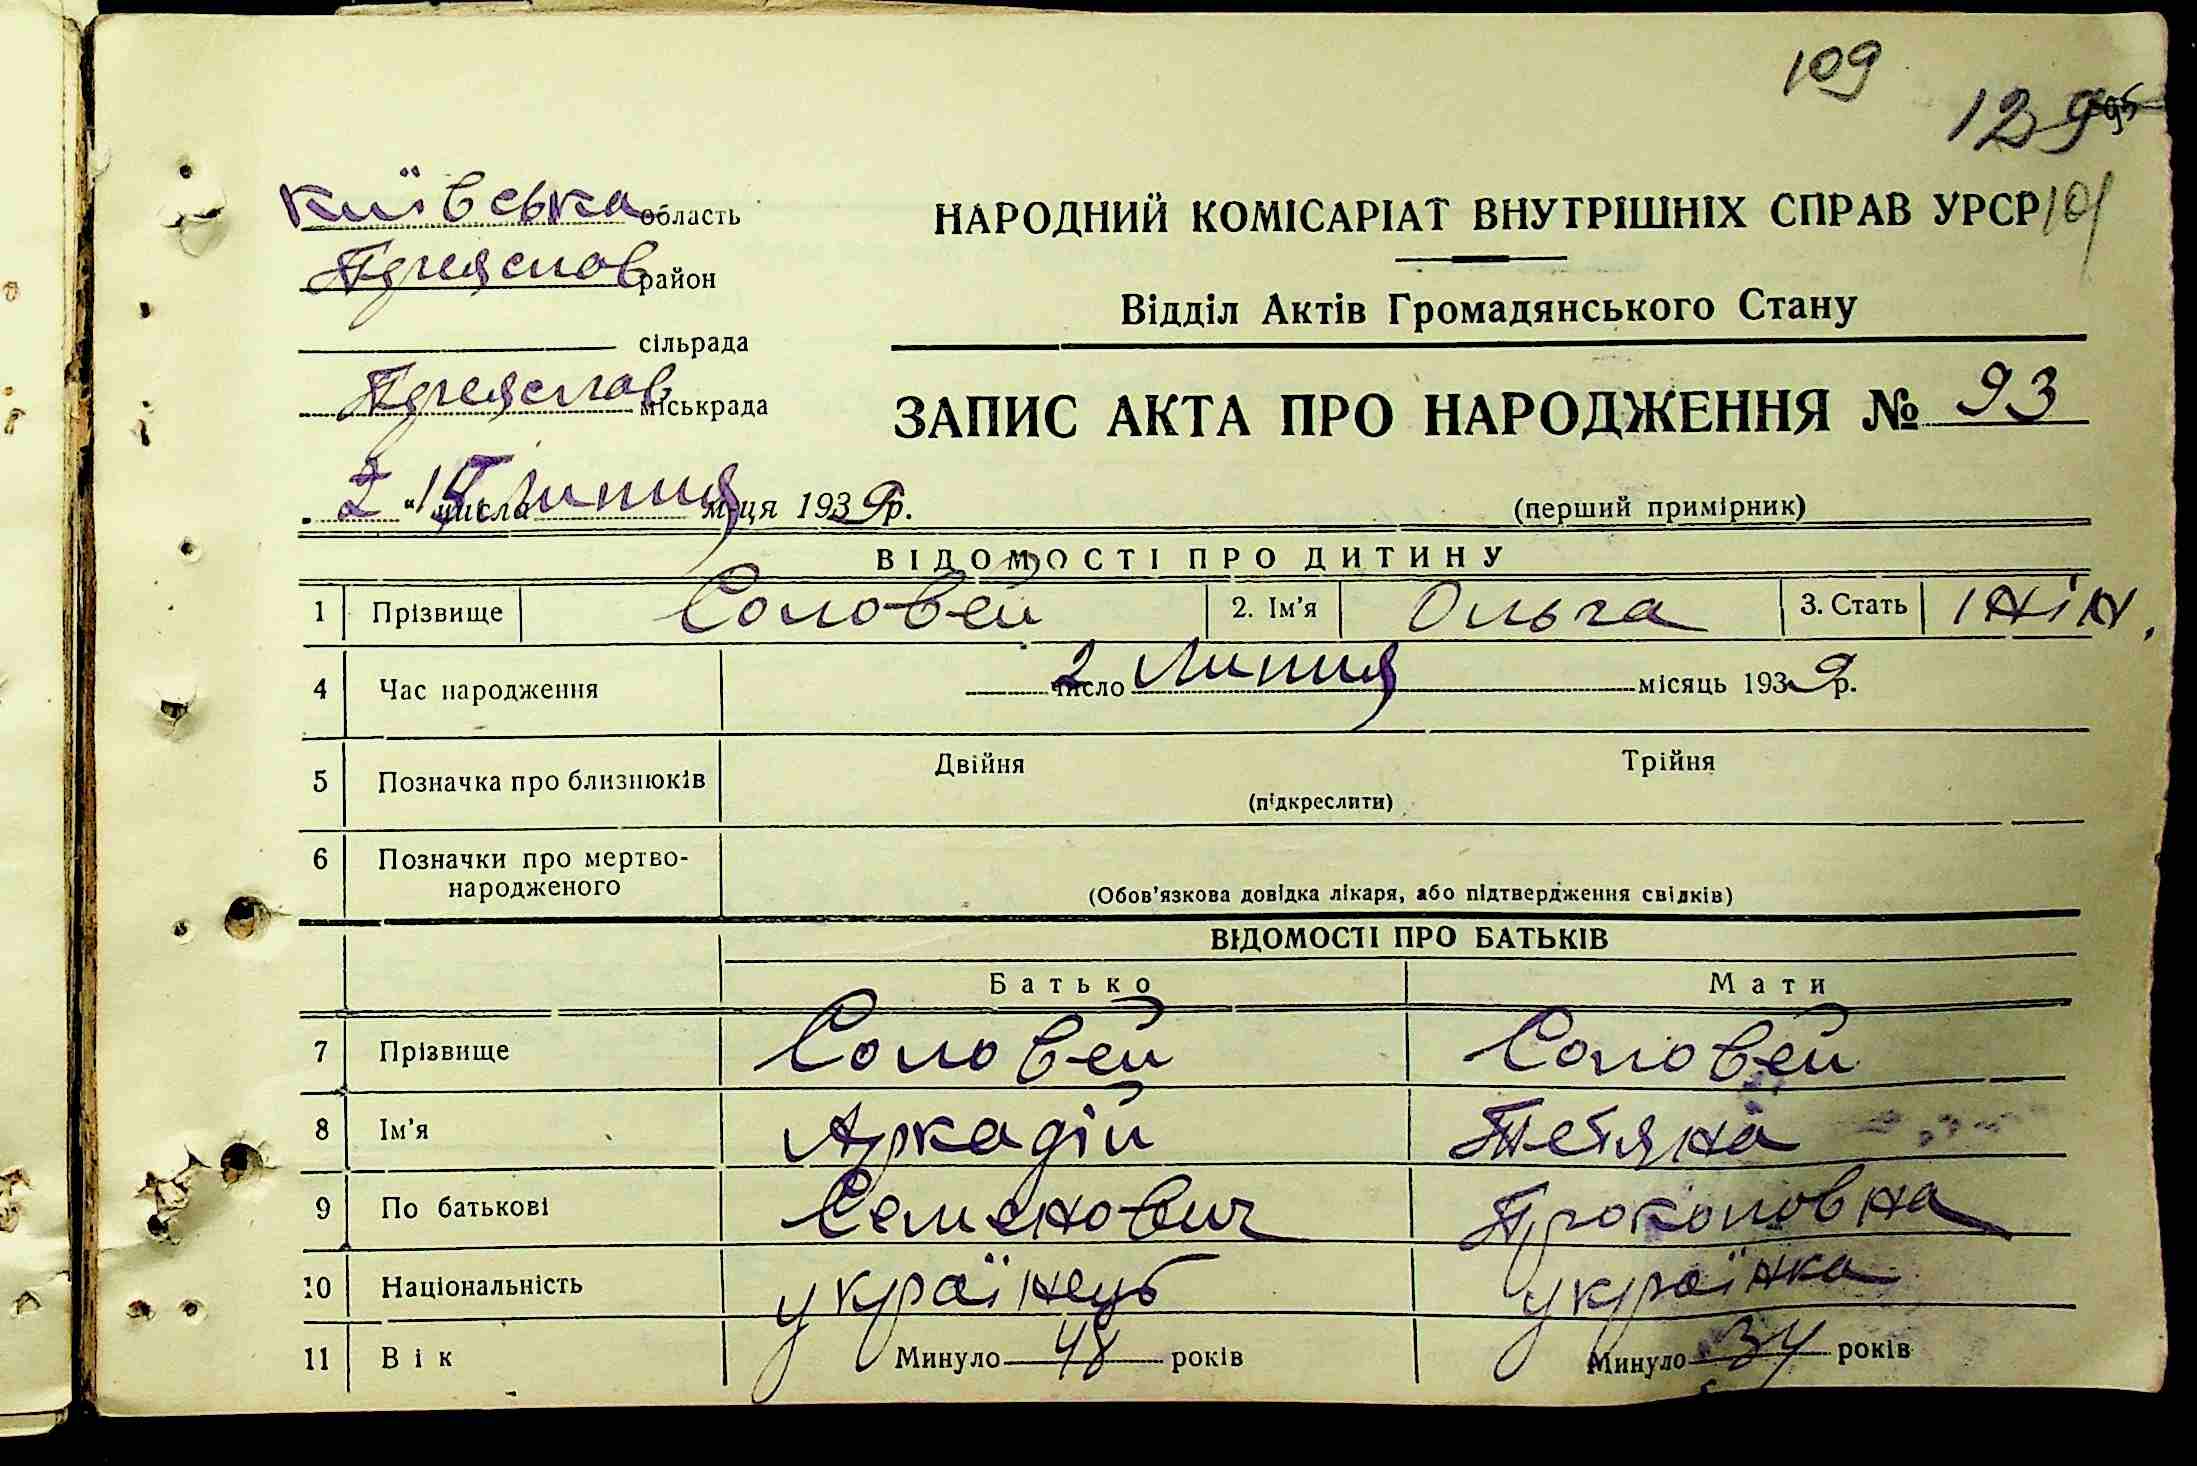 109
129
95
101
Київська область
НАРОДНИЙ КОМІСАРІАТ ВНУТРІШНІХ СПРАВ УРСР
Переяслав район
Відділ Актів Громадянського Стану
сільрада
Переяслав міськрада
ЗАПИС АКТА ПРО НАРОДЖЕННЯ № 93
числа Липня м-ця 1939 р.
(перший примірник)
ВІДОМОСТІ ПРО ДИТИНУ
1 Прізвище Соловей 2. Ім'я Ольга 3. Стать жін.
4 Час народження 2 число Липня місяць 1939 р.
5 Позначка про близнюків Двійня Трійня
(підкреслити)
6 Позначки про мертво-
народженого
(Обов'язкова довідка лікаря, або підтвердження свідків)
ВІДОМОСТІ ПРО БАТЬКІВ
Батько Мати
7 Прізвище Соловей Соловей
8 Ім'я Аркадій Тетяна
9 По батькові Семенович Прокоповна
10 Національність українець українка
11 Вік Минуло 48 років Минуло 34 років